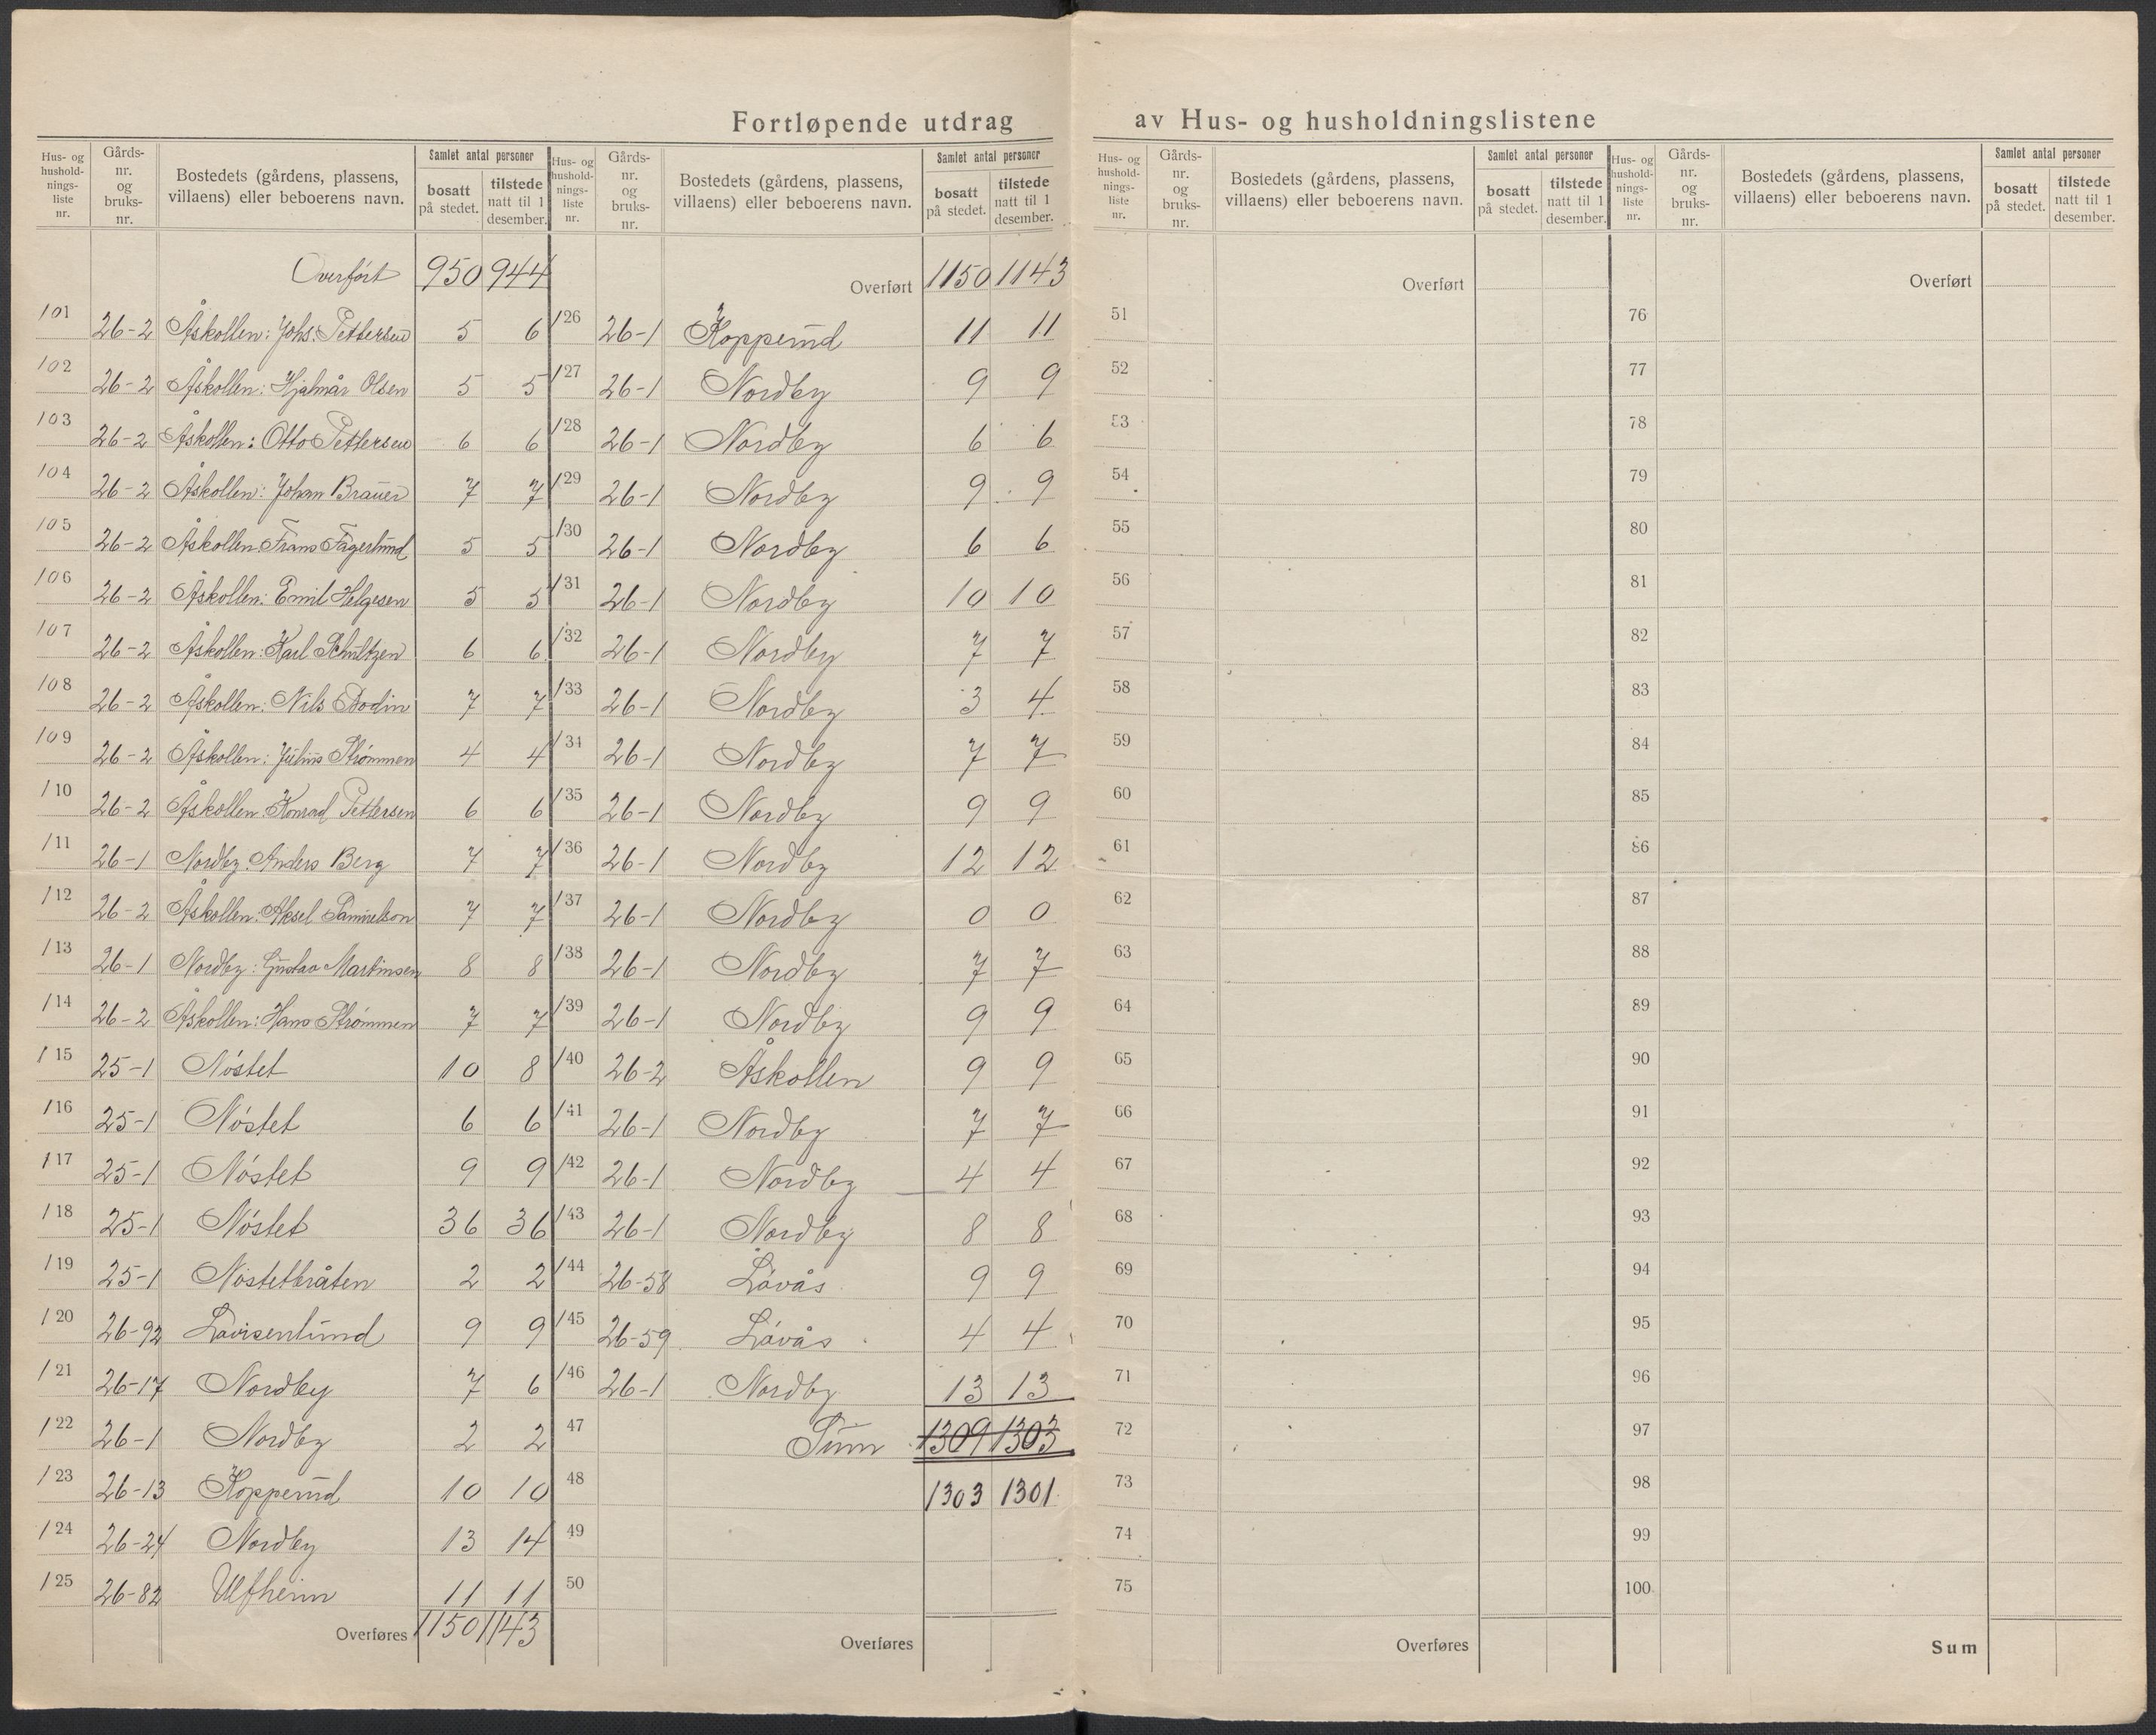 Fortløpende utdrag av Hus- og husholdningslistene
Hus- og hushold-nings-liste nr. Gårds-nr. og bruks-nr. Bostedets (gårdens, plassens, villaens) eller beboerens navn. Samlet antal personer bosatt på stedet. tilstede natt til 1 desember.
Overført 950 944
101 26-2 Åskollen: Johs. Pettersen 5 6
102 26-2 Åskollen: Hjalmar Olsen 5 5
103 26-2 Åskollen: Otto Pettersen 6 6
104 26-2 Åskollen: Johan Brauer 7 7
105 26-2 Åskollen: Frans Fagerlund 5 5
106 26-2 Åskollen: Emil Helgesen 5 5
107 26-2 Åskollen: Karl Schultzen 6 6
108 26-2 Åskollen: Nils Bodin 7 7
109 26-2 Åskollen: Julius Strømmen 4 4
110 26-2 Åskollen: Konrad Pettersen 6 6
111 26-1 Nordby: Anders Berg 7 7
112 26-2 Åskollen: Aksel Samuelson 7 7
113 26-1 Nordby: Gustav Martinsen 8 8
114 26-2 Åskollen: Hans Strømmen 7 7
115 25-1 Nöstet 10 8
116 25-1 Nöstet 6 6
117 25-1 Nöstet 9 9
118 25-1 Nöstet 36 36
119 25-1 Nöstetbråten 2 2
120 26-92 Lovisenlund 9 9
121 26-17 Nordby 7 6
122 26-1 Nordby 2 2
123 26-13 Kopperud 10 10
124 26-24 Nordby 13 14
125 26-82 Ulfheim 11 11
Overføres 1150 1143
Hus- og hushold-nings-liste nr. Gårds-nr. og bruks-nr. Bostedets (gårdens, plassens, villaens) eller beboerens navn. Samlet antal personer bosatt på stedet. tilstede natt til 1 desember.
Overført 1150 1143
126 26-1 Kopperud 11 11
127 26-1 Nordby 9 9
128 26-1 Nordby 6 6
129 26-1 Nordby 9 9
130 26-1 Nordby 6 6
131 26-1 Nordby 10 10
132 26-1 Nordby 7 7
133 26-1 Nordby 3 4
134 26-1 Nordby 7 7
135 26-1 Nordby 9 9
136 26-1 Nordby 12 12
137 26-1 Nordby 0 0
138 26-1 Nordby 7 7
139 26-1 Nordby 9 9
140 26-2 Åskollen 9 9
141 26-1 Nordby 7 7
142 26-1 Nordby 4 4
143 26-1 Nordby 8 8
144 26-58 Lövås 9 9
145 26-59 Lövås 4 4
146 26-1 Nordby 13 13
47 Sum 1309 1303
48 1303 1301
49
50
Overføres
Hus- og hushold-nings-liste nr. Gårds-nr. og bruks-nr. Bostedets (gårdens, plassens, villaens) eller beboerens navn. Samlet antal personer bosatt på stedet. tilstede natt til 1 desember.
Overført
51
52
53
54
55
56
57
58
59
60
61
62
63
64
65
66
67
68
69
70
71
72
73
74
75
Overføres
Hus- og hushold-nings-liste nr. Gårds-nr. og bruks-nr. Bostedets (gårdens, plassens, villaens) eller beboerens navn. Samlet antal personer bosatt på stedet. tilstede natt til 1 desember.
Overført
76
77
78
79
80
81
82
83
84
85
86
87
88
89
90
91
92
93
94
95
96
97
98
99
100
Sum